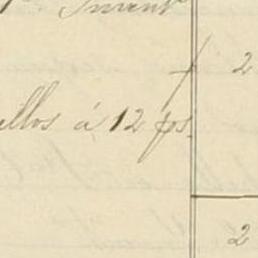 Invent
2
llos á 12 ps.
2